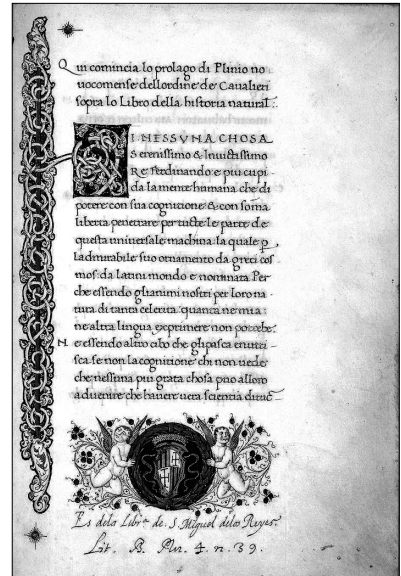 Qui comincia lo prolago di Plinio no
uocomense dellordine de Caualieri
sopra lo Libro della historia natural :
DI NESSVNA CHOSA
Serenissimo & Inuictissimo
Re ferdinando e piu cupi
da la mente humana che di
potere con sua cognitione & con soma
liberta penetrare per tucte le parte de
questa uniuersale machina la quale p
la dmirabile suo ornamento da greci cos
mos da latini mondo e nominata Per
che essendo gli animi nostri per loro na
tura di tanta celerita quanta ne mia
ne altra lingua exprimere non potrebe
N e essendo altro cibo che gli pasca e nutri
sca se non la cognitione chi non uede
che nessuna piu grata chosa puo alloro
aduenire che hauere uera scientia di
Es dela Libr.ª de. S. Miguel delos Reyes.
Lit. B. Plu. 4. n. 39.